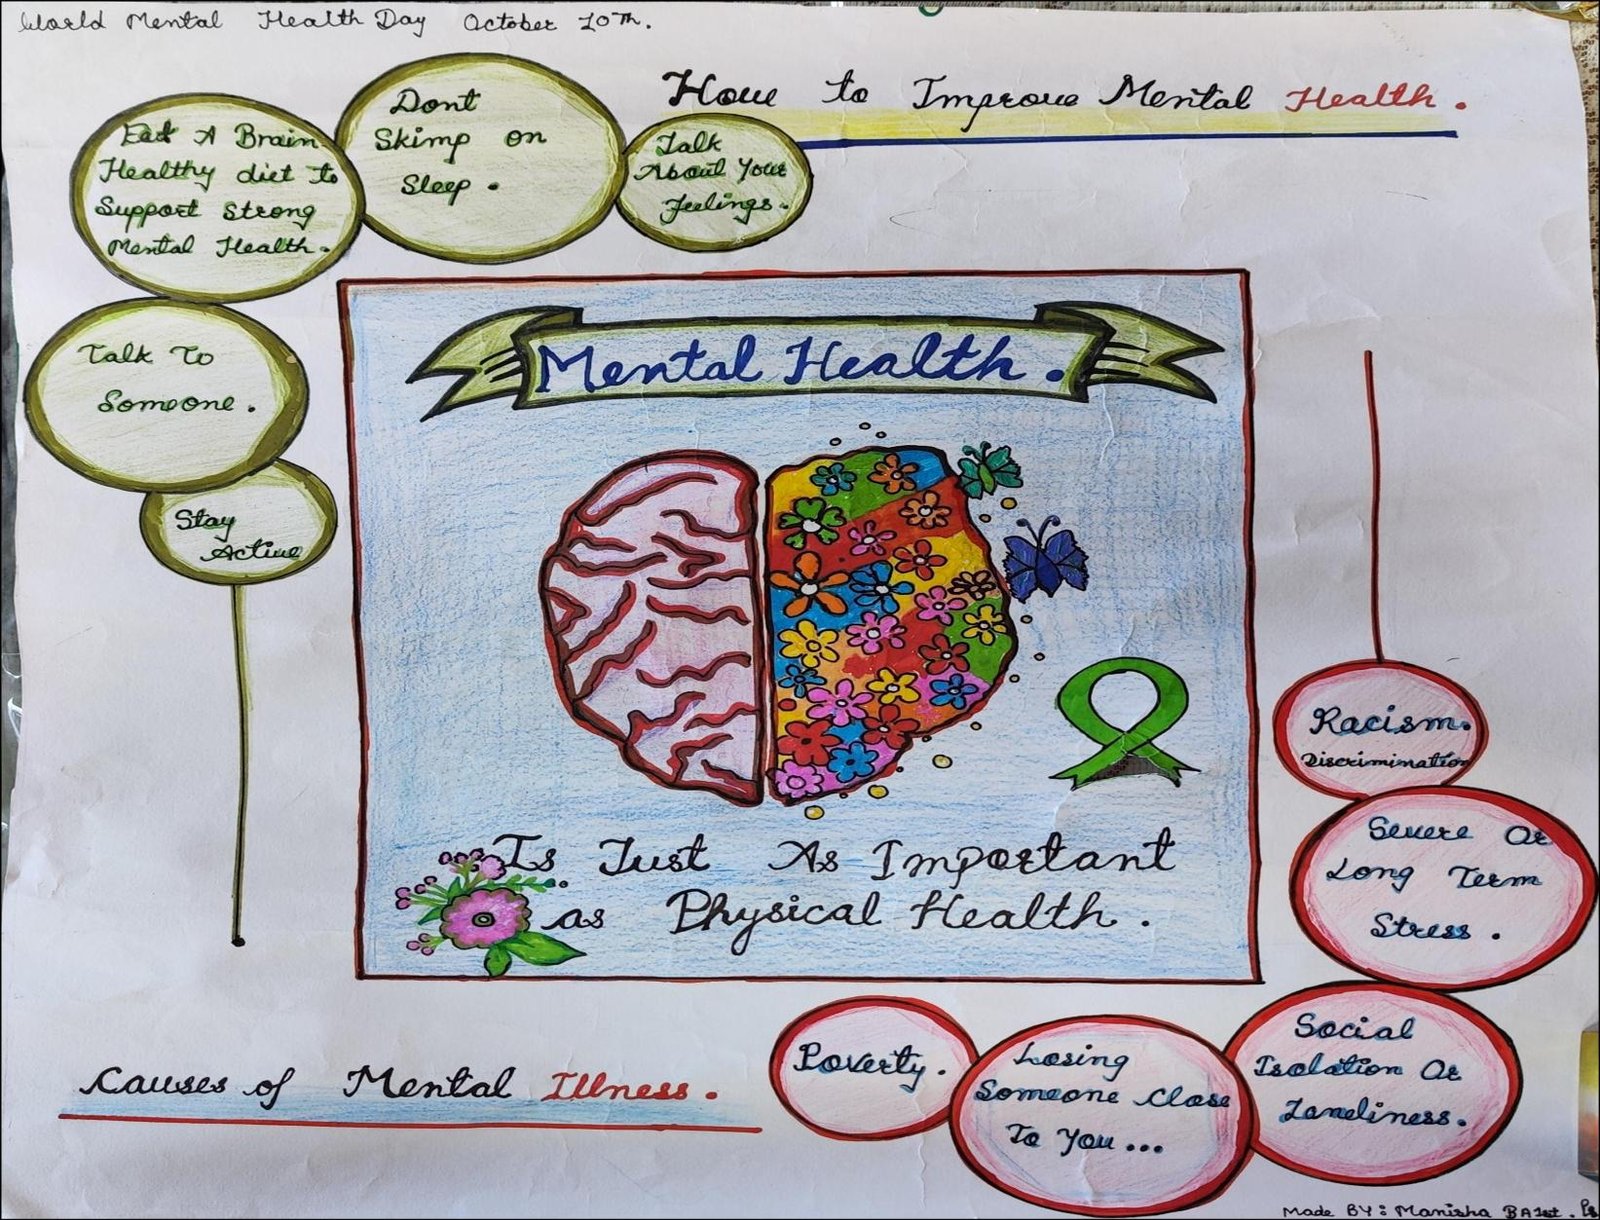 World Mental Health Day October 10Th.
How to Improve Mental Health.
Eat A Brain
Healthy diet to
Support Strong
Mental Health.
Dont
Skimp on
Sleep.
Talk
About Your
feelings.
Talk To
Someone.
Stay
Active
Mental Health.
Is Just As Important
as Physical Health.
Racism.
Discrimination
Severe Or
Long Term
Stress.
Social
Isolation Or
Loneliness.
Losing
Someone Close
To You...
Poverty.
Causes of Mental Illness.
Made BY: Manisha BA1st.